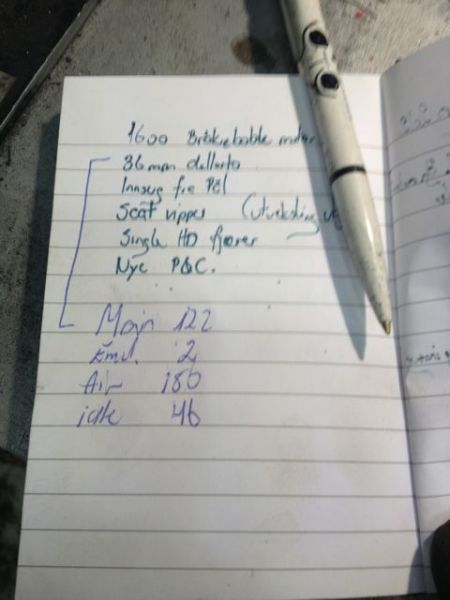 1600 Brukbable motor
36mm dellorto
Innsug fra Pål
Scat vipper (utveksling
Single HD fjærer
Nye P&C.
Main 122
Emul. 2
Air 180
idle 46